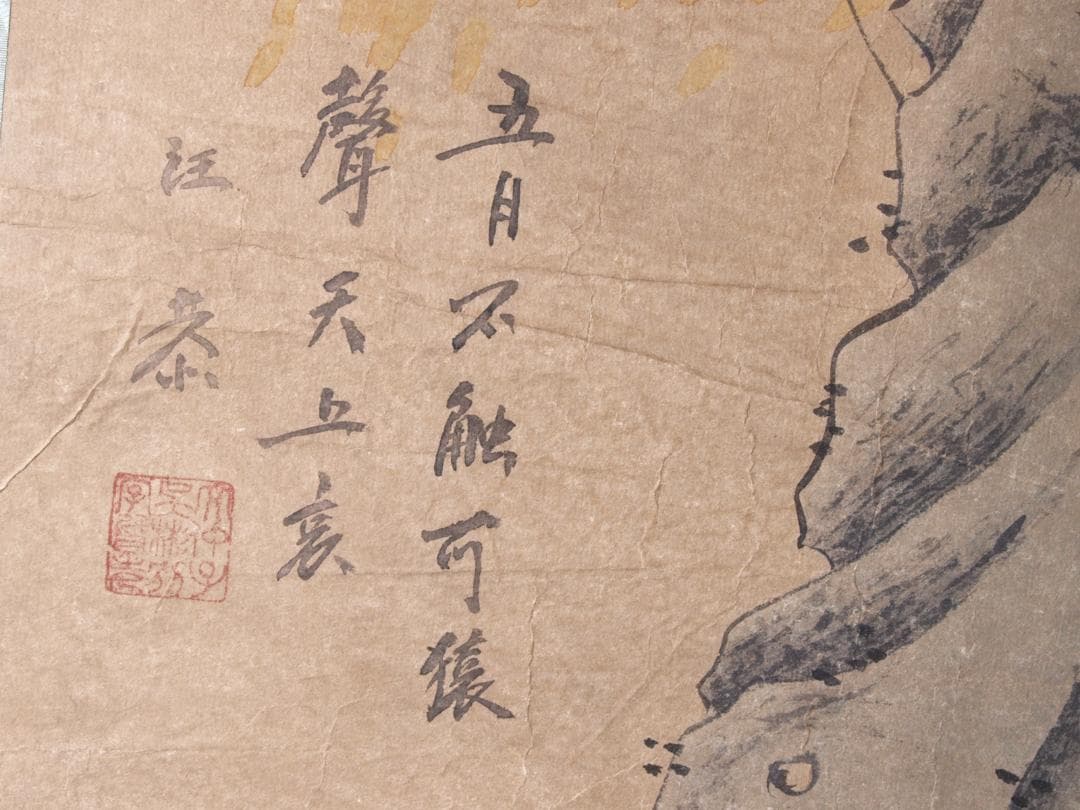 五月不觸可猿
聲天上哀
汪恭